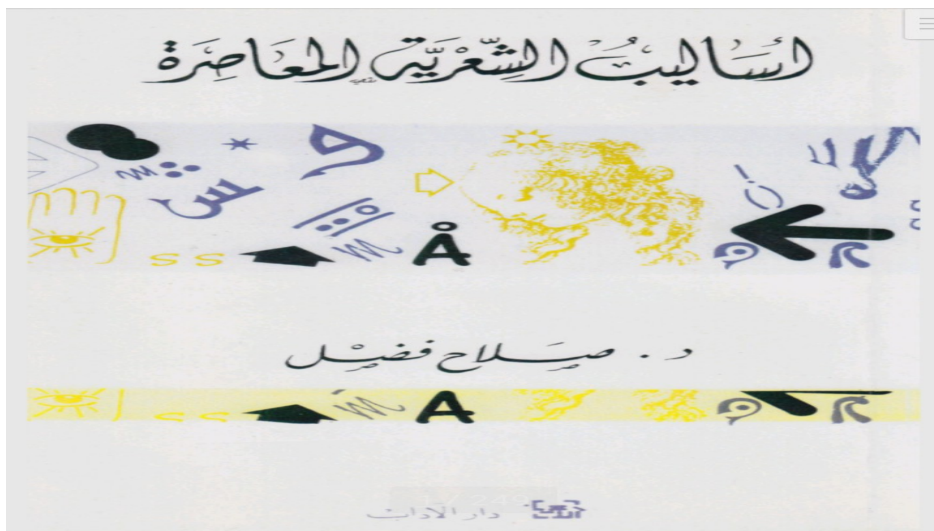 أسَاليبُ الشِّعْريَّةِ المعَاصِرَة
د. صَلاح فضْل
دار الآداب